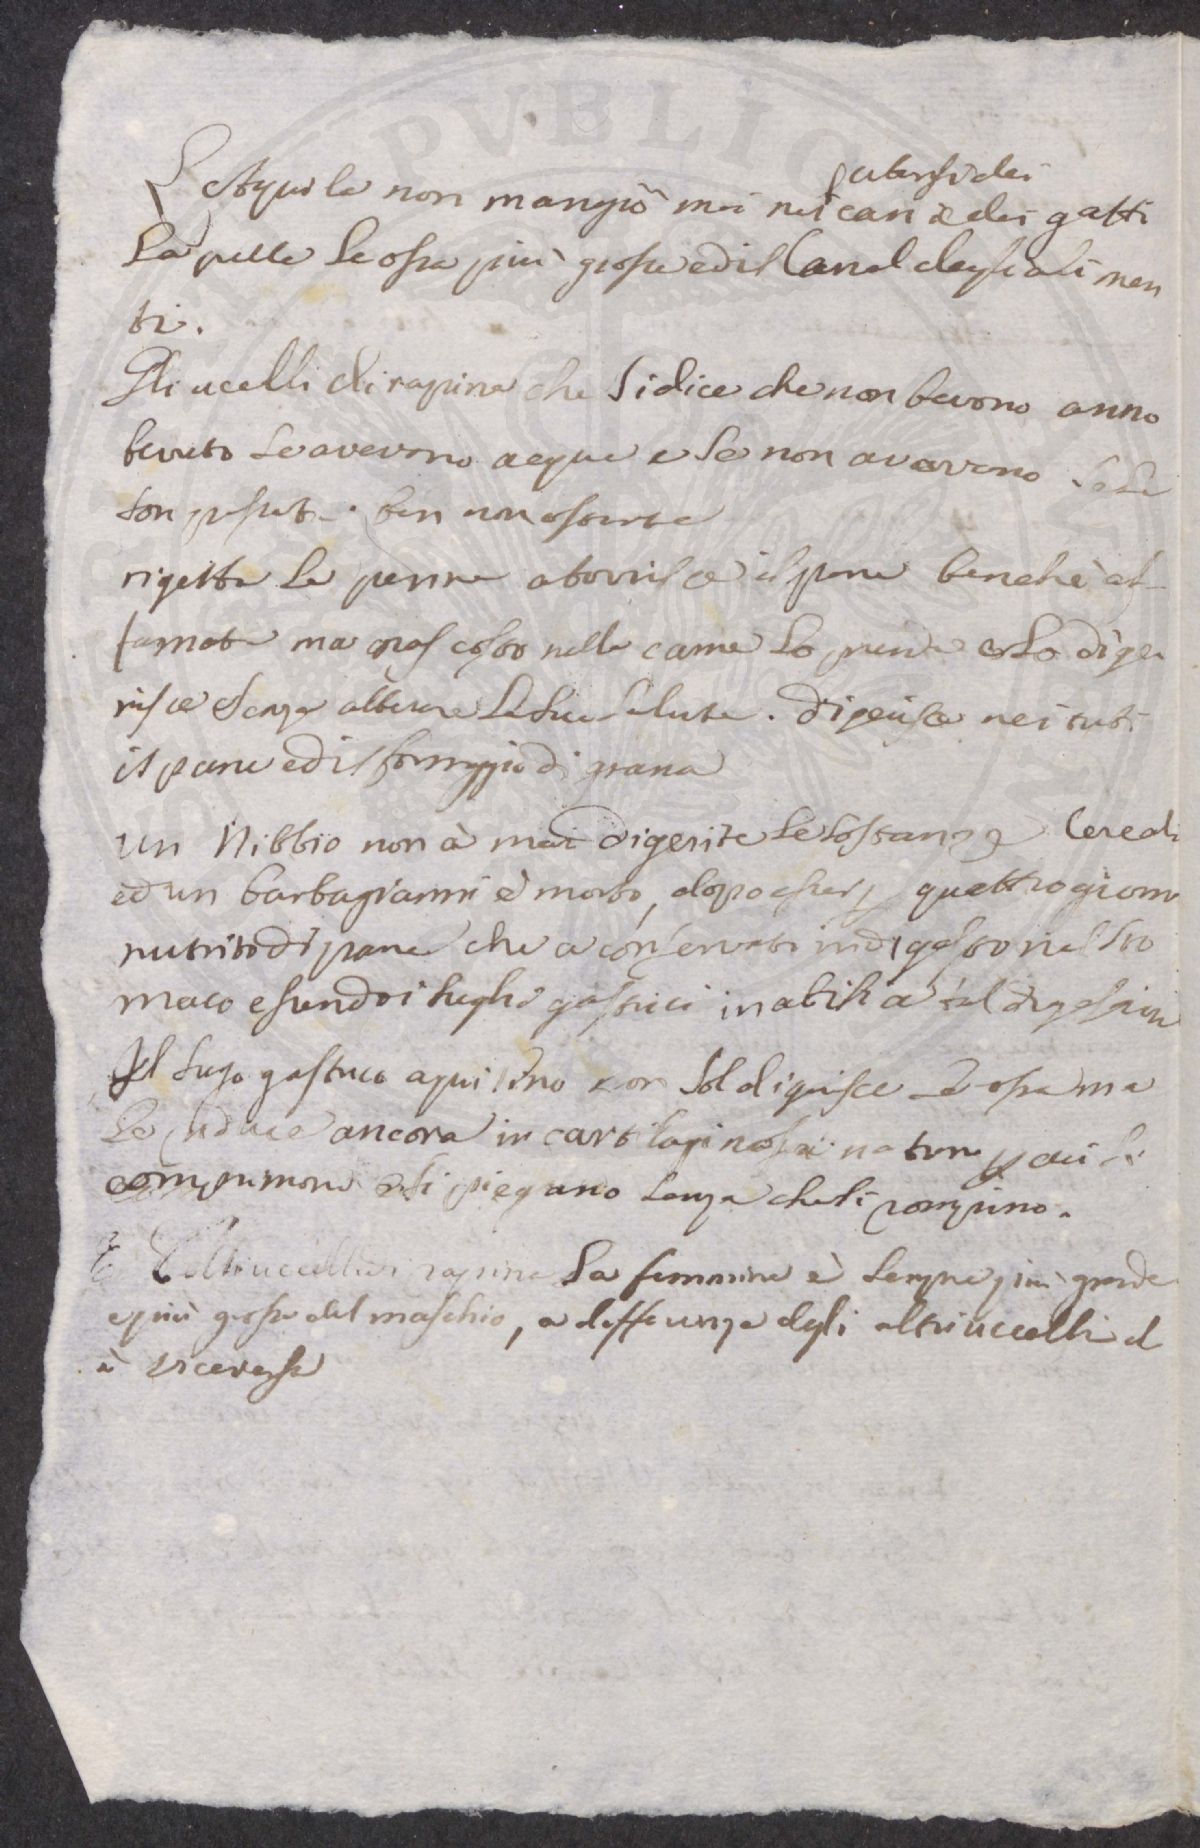 L'Aquila non mangiò mai nei cani e dei gatti
la pelle le ossa più grosse ed il Canal degl'alimen
ti.
Gli ucelli di rapina che si dice che non bevono anno
bevuto se avevano acqua e se non avevano se la
son passata ben non ostante
rigetta le penne aborrisce il pane benchè af-
famata ma nascosto nella carne lo prende e lo dige
risce senza alterare la sua salute. digerisce nei tubi
il pane ed il formaggio di grana
un Nibbio non à mai digerite le sostanze Cereali
ed un barbagianni è morto, dopo esser quattro giorni
nutrito di pane che a conservato indigesto nel sto
maco essendo i sughi gastrici inabili a tal digestione
Il sugo gastrico aquilino non sol digerisce le ossa ma
le riduce ancora in cartilaginosa natura per cui si
comprimono e si piegano senza che si rompino.
Negli uccelli di rapina la femmina è sempre più grande
e più grossa del maschio, a differenza degli altri uccelli ch
è viceversa
PVBLIC